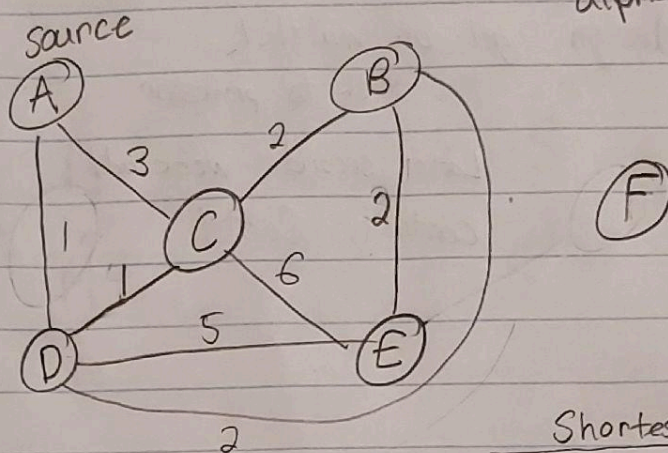 alph
source
A
B
3
2
C
2
F
1
1
6
5
D
E
2
Shortes